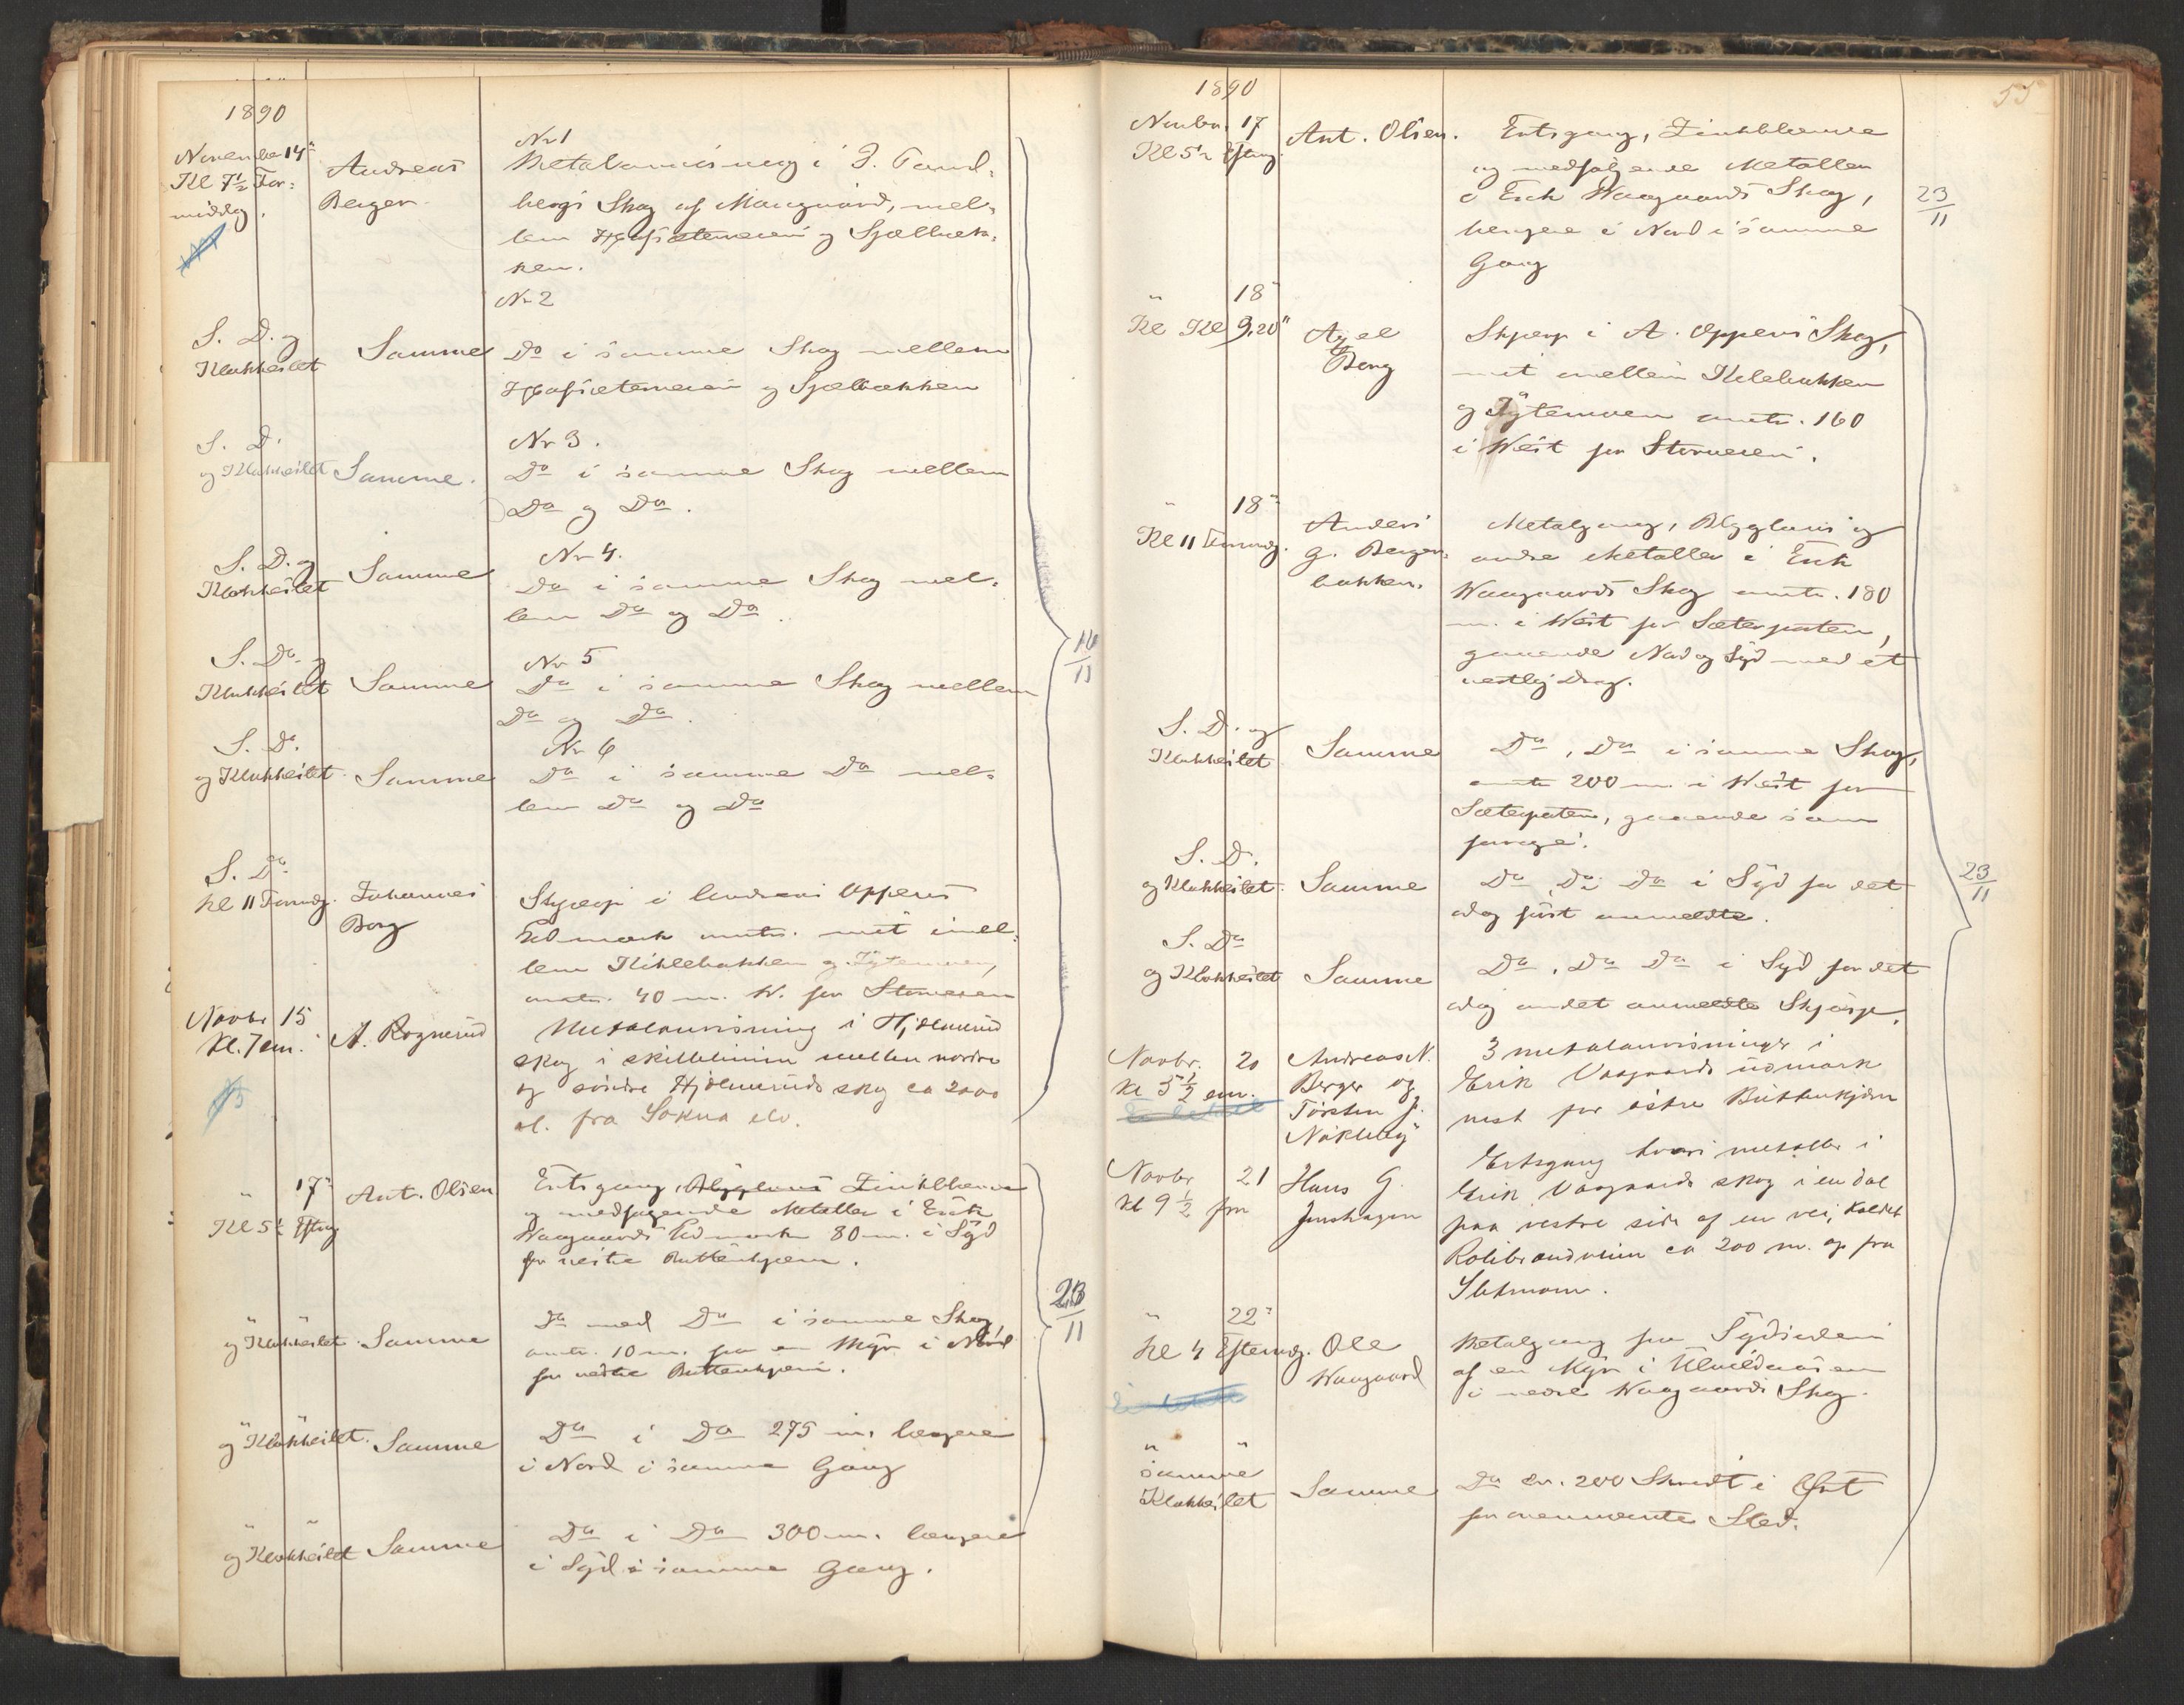 1890
November 14de
Kl 7½ For-
middg.
Andreas
Berger
Nr 1
Metalanvisning i J. Tand-
bergs Skog af Maagaard, mel-
lem og Sjælbæk-
ken.
S. D. og
Klokkeslet
Samme
Nr 2
Do i samme Skog mellem
og Sjælbækken
S. D.
og Klokkeslet
Samme.
Nr 3.
Do i samme Skog mellem
Do og Do.
S. D. og
Klokkeslet
Samme
Nr 4.
Do i samme Skog mel-
lem Do og Do.
S. Do. og
Klokkeslet
Samme
Nr 5
Do i samme Skog mellem
Do og Do.
S. D.
og Klokkeslet.
Samme
Nr 6
Do i samme Do mel-
lem Do og Do
16/11
S. Do.
Kl 11 Formdg.
Johannes
Borg
Skjærp i Andreas Oppens
Udmark omtr. midt imel-
lem Kihlebakken og Tytemoen,
omtr. 40 m. W. for Storveien
Novbr 15
Kl. 7 em.
A. Rognerud
Metalanvisning i Hjelmerud
skog i skillelinien mellem nordre
og søndre Hjelmeruds skog ca 2000
al. fra Sokna elv.
" 17de
Kl 5½ Eftmg
Ant. Olsen
Ertsgang, Blyglans Zinkblende
og medfølgende Metaller i Erik
Waagaards Udmark 80 m. i Syd
for vestre Buttenkjern.
" "
og Klokkeslet.
Samme
Do med Do i samme Skog,
omtr. 10 m. fra en Myr i Nord
for vestre Buttenkjern.
23/11
" "
og Klokkeslet.
Samme
Do i Do 275 m. længere
i Nord i samme Gang
" "
og Klokkeslet
Samme
Do i Do 300 m. længere
i Syd i samme Gang.
55
1890
Novbr. 17
Kl 5½ Eftmg.
Ant. Olsen.
Ertsgang, Zinkblende
og medfølgende Metaller
i Erik Waagaards Skog,
længere i Nord i samme
Gang
23/11
" 18
Kl Kl 9.20"
Axel
Borg
Skjærp i A. Oppens Skog,
mit mellem Kilebakken
og Tytemoen omtr. 160
i West for Storveien.
" 18de
Kl 11 Formdg.
Anders
G. Berger-
bakken.
Metalgang, Blyglans og
andre Metaller i Erik
Waagaards Skog omtr. 180
m. i West for Sæterporten,
gaaende Nord og Syd med et
vestlig Drag.
S. D. og
Klokkeslet
Samme
Do, Do i samme Skog,
omtr 200 m. i West for
Sæterporten, gaaende som
forrige.
S. D.
og Klokkeslet.
Samme
Do Do Do i Syd for det
idag først anmeldte.
S. Do
og Klokkeslet
Samme
Do, Do Do i Syd for det
idag andet anmeldte Skjærp.
23/11
Novbr. 20
Kl 5½ em.
Andreas N.
Berger og
Torsten J.
Nakleby
3 metalanvisninger i
Erik Vaagaards udmark
vest for østre Buttenkjern
Novbr 21
Kl 9½ fm
Hans G.
Jonshagen
Ertsgang hvori metaller i
Erik Vaagaards skog i en dal
paa vestre side af en vei, kaldet
ca 200 m. op fra
" 22de
Kl 4 Eftermdg.
Ole
Waagaard
Metalgang paa Sydsiden
af en Myr i
i nedre Waagaards Skog.
" "
samme
Klokkeslet
Samme
Do ca. 200 Skridt i Øst
for ovennævnte Sted.